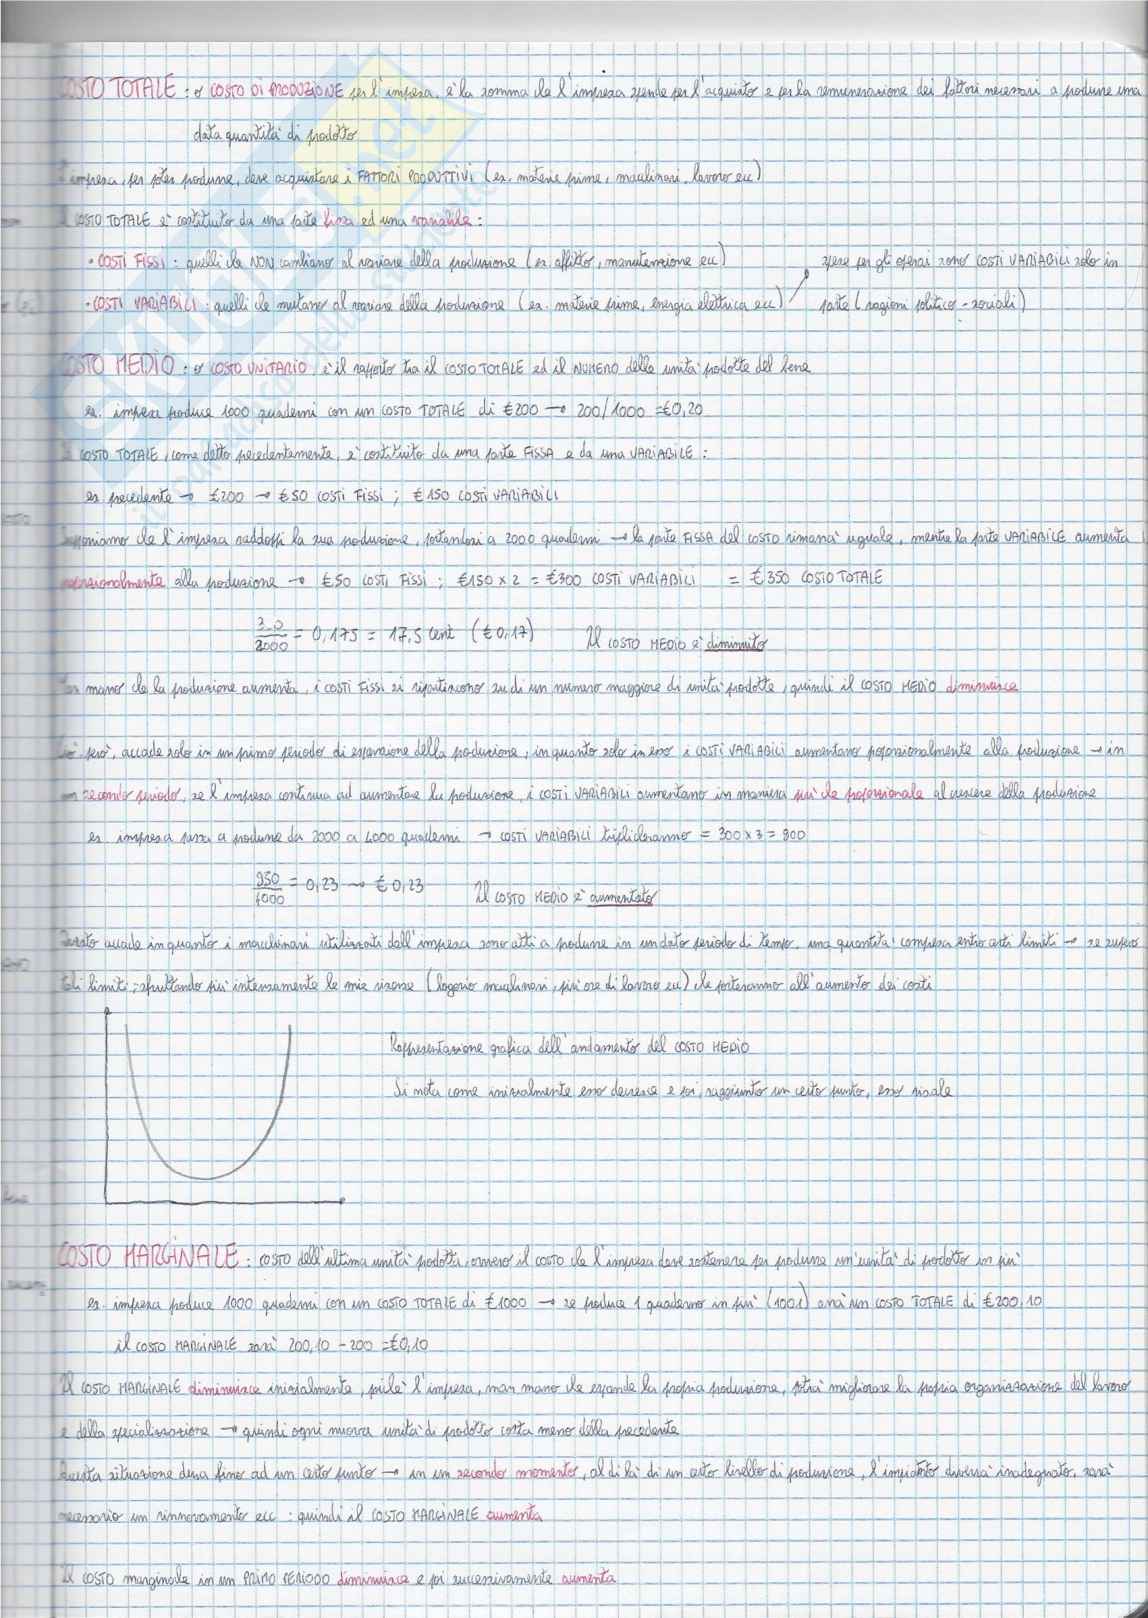 COSTO TOTALE : o COSTO DI PRODUZIONE per l'impresa, è la somma che l'impresa spende per l'acquisto e per la remunerazione dei fattori necessari a produrre una
data quantità di prodotto
L'impresa, per poter produrre, deve acquistare i FATTORI PRODUTTIVI (es. materie prime, macchinari, lavoro ecc)
Il COSTO TOTALE è costituito da una parte fissa ed una variabile :
• COSTI FISSI : quelli che NON cambiano al variare della produzione (es. affitto, manutenzione ecc)
spese per gli operai sono COSTI VARIABILI solo in
• COSTI VARIABILI : quelli che mutano al variare della produzione (es. materie prime, energia elettrica ecc)
parte (ragioni politico-sociali)
COSTO MEDIO : o COSTO UNITARIO, è il rapporto tra il COSTO TOTALE ed il NUMERO delle unità prodotte del bene
es. impresa produce 1000 quaderni con un COSTO TOTALE di €200 → 200/1000 = €0,20
Il COSTO TOTALE, come detto precedentemente, è costituito da una parte FISSA e da una VARIABILE :
es precedente → €200 → €50 COSTI FISSI ; €150 COSTI VARIABILI
Supponiamo che l'impresa raddoppi la sua produzione, portandosi a 2000 quaderni → la parte FISSA del COSTO rimarrà uguale, mentre la parte VARIABILE aumenta
proporzionalmente alla produzione → €50 COSTI FISSI ; €150 x 2 = €300 COSTI VARIABILI = €350 COSTO TOTALE
2000 = 0,175 = 17,5 cent (€0,17) Il COSTO MEDIO è diminuito
man mano che la produzione aumenta, i COSTI FISSI si ripartiscono su di un numero maggiore di unità prodotte, quindi il COSTO MEDIO diminuisce
Ciò però, accade solo in un primo periodo di espansione della produzione, in quanto solo in esso i COSTI VARIABILI aumentano poporzionalmente alla produzione → in
un secondo periodo, se l'impresa continua ad aumentare la produzione, i COSTI VARIABILI aumentano in maniera più che poporzionale al crescere della produzione
es impresa passa a produrre da 2000 a 4000 quaderni → COSTI VARIABILI triplicheranno = 300 x 3 = 900
950
4000 = 0,23 → €0,23 Il COSTO MEDIO è aumentato
Questo accade in quanto i macchinari utilizzati dall'impresa sono atti a produrre in un dato periodo di tempo, una quantità compresa entro certi limiti → se supero
tali limiti, sfruttando più intensamente le mie risorse (logorio macchinari, più ore di lavoro ecc) che porteranno all'aumento dei costi
Rappresentazione grafica dell'andamento del COSTO MEDIO
Si nota come inizialmente esso decresce e poi, raggiunto un certo punto, esso risale
COSTO MARGINALE : COSTO dell'ultima unità prodotta, ovvero il costo che l'impresa deve sostenere per produrre un'unità di prodotto in più
es. impresa produce 1000 quaderni con un COSTO TOTALE di €1000 → se produce 1 quaderno in più (1001) avrà un COSTO TOTALE di €200,10
il COSTO MARGINALE sarà 200,10 - 200 = €0,10
Il COSTO MARGINALE diminuisce inizialmente, poiché l'impresa, man mano che espande la propria produzione, potrà migliorare la propria organizzazione del lavoro
e della specializzazione → quindi ogni nuova unità di prodotto costa meno della precedente
Questa situazione dura fino ad un certo punto → in un secondo momento, al di là di un certo livello di produzione, l'impianto diverrà inadeguato, sarà
necessario un rinnovamento ecc : quindi il COSTO MARGINALE aumenta
Il COSTO marginale in un PRIMO PERIODO diminuisce e poi successivamente aumenta